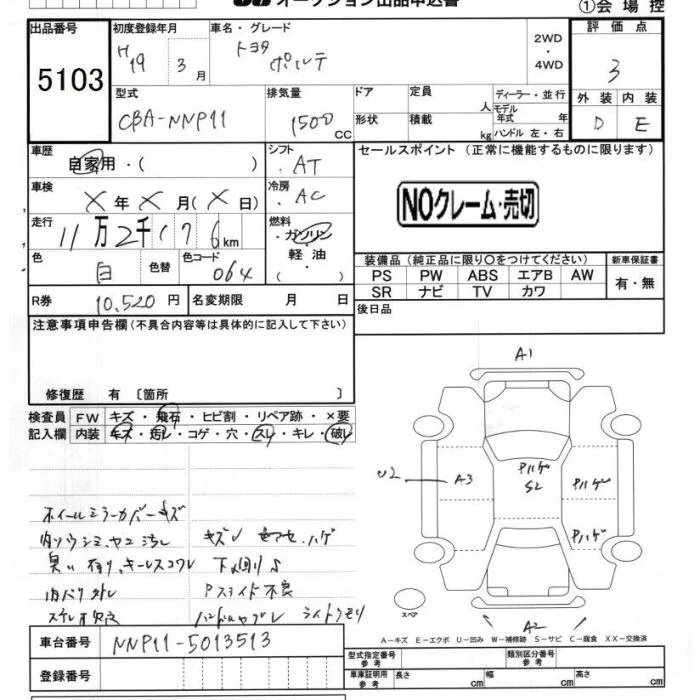 オークション出品申込書
①会場控
出品番号 初度登録年月 車名・グレード 2WD・4WD 評価点
5103 H19 3月 トヨタ ポルテ 3
型式 排気量 ドア 定員 人 ディーラー・並行 外装 内装
CBA-NNP11 1500 CC 形状 積載 kg モデル年式 年 ハンドル 左・右 D E
車歴 自家用・( ) シフト AT セールスポイント(正常に機能するものに限ります)
車検 X年X月(X日) 冷房 AC NOクレーム・売切
走行 11万2千176km 燃料 ・ガソリン 軽油 ( )
色 白 色替 色コード 064
装備品(純正品に限り○をつけてください) 新車保証書
PS PW ABS エアB AW 有・無
SR ナビ TV カワ
R券 10,520円 名変期限 月 日 後日品
注意事項申告欄(不具合内容等は具体的に記入して下さい)
修復歴 有 〔箇所 〕
検査員 FW キズ・飛石・ヒビ割・リペア跡・×要
記入欄 内装 キズ・汚レ・コゲ・穴・スレ・キレ・破レ
A1
U2 A3 Pハゲ S2 Pハゲ
Pハゲ
A2
スペア
ホイールミラーカバーキズ
内ソウシミ、ヤニ汚レ キズ 色アセ、ハゲ
臭い有り、キーレスコワレ 下廻りサビ
内バリ Pスライド不良
ステレオ欠品 ライトクモリ
A-キズ E-エクボ U-凹み W-補修跡 S-サビ C-腐食 XX-交換済
車台番号 NNP11-5013513
登録番号
型式指定番号 参考 類別区分番号 参考
車庫証明用 参考 長さ cm 幅 cm 高さ cm